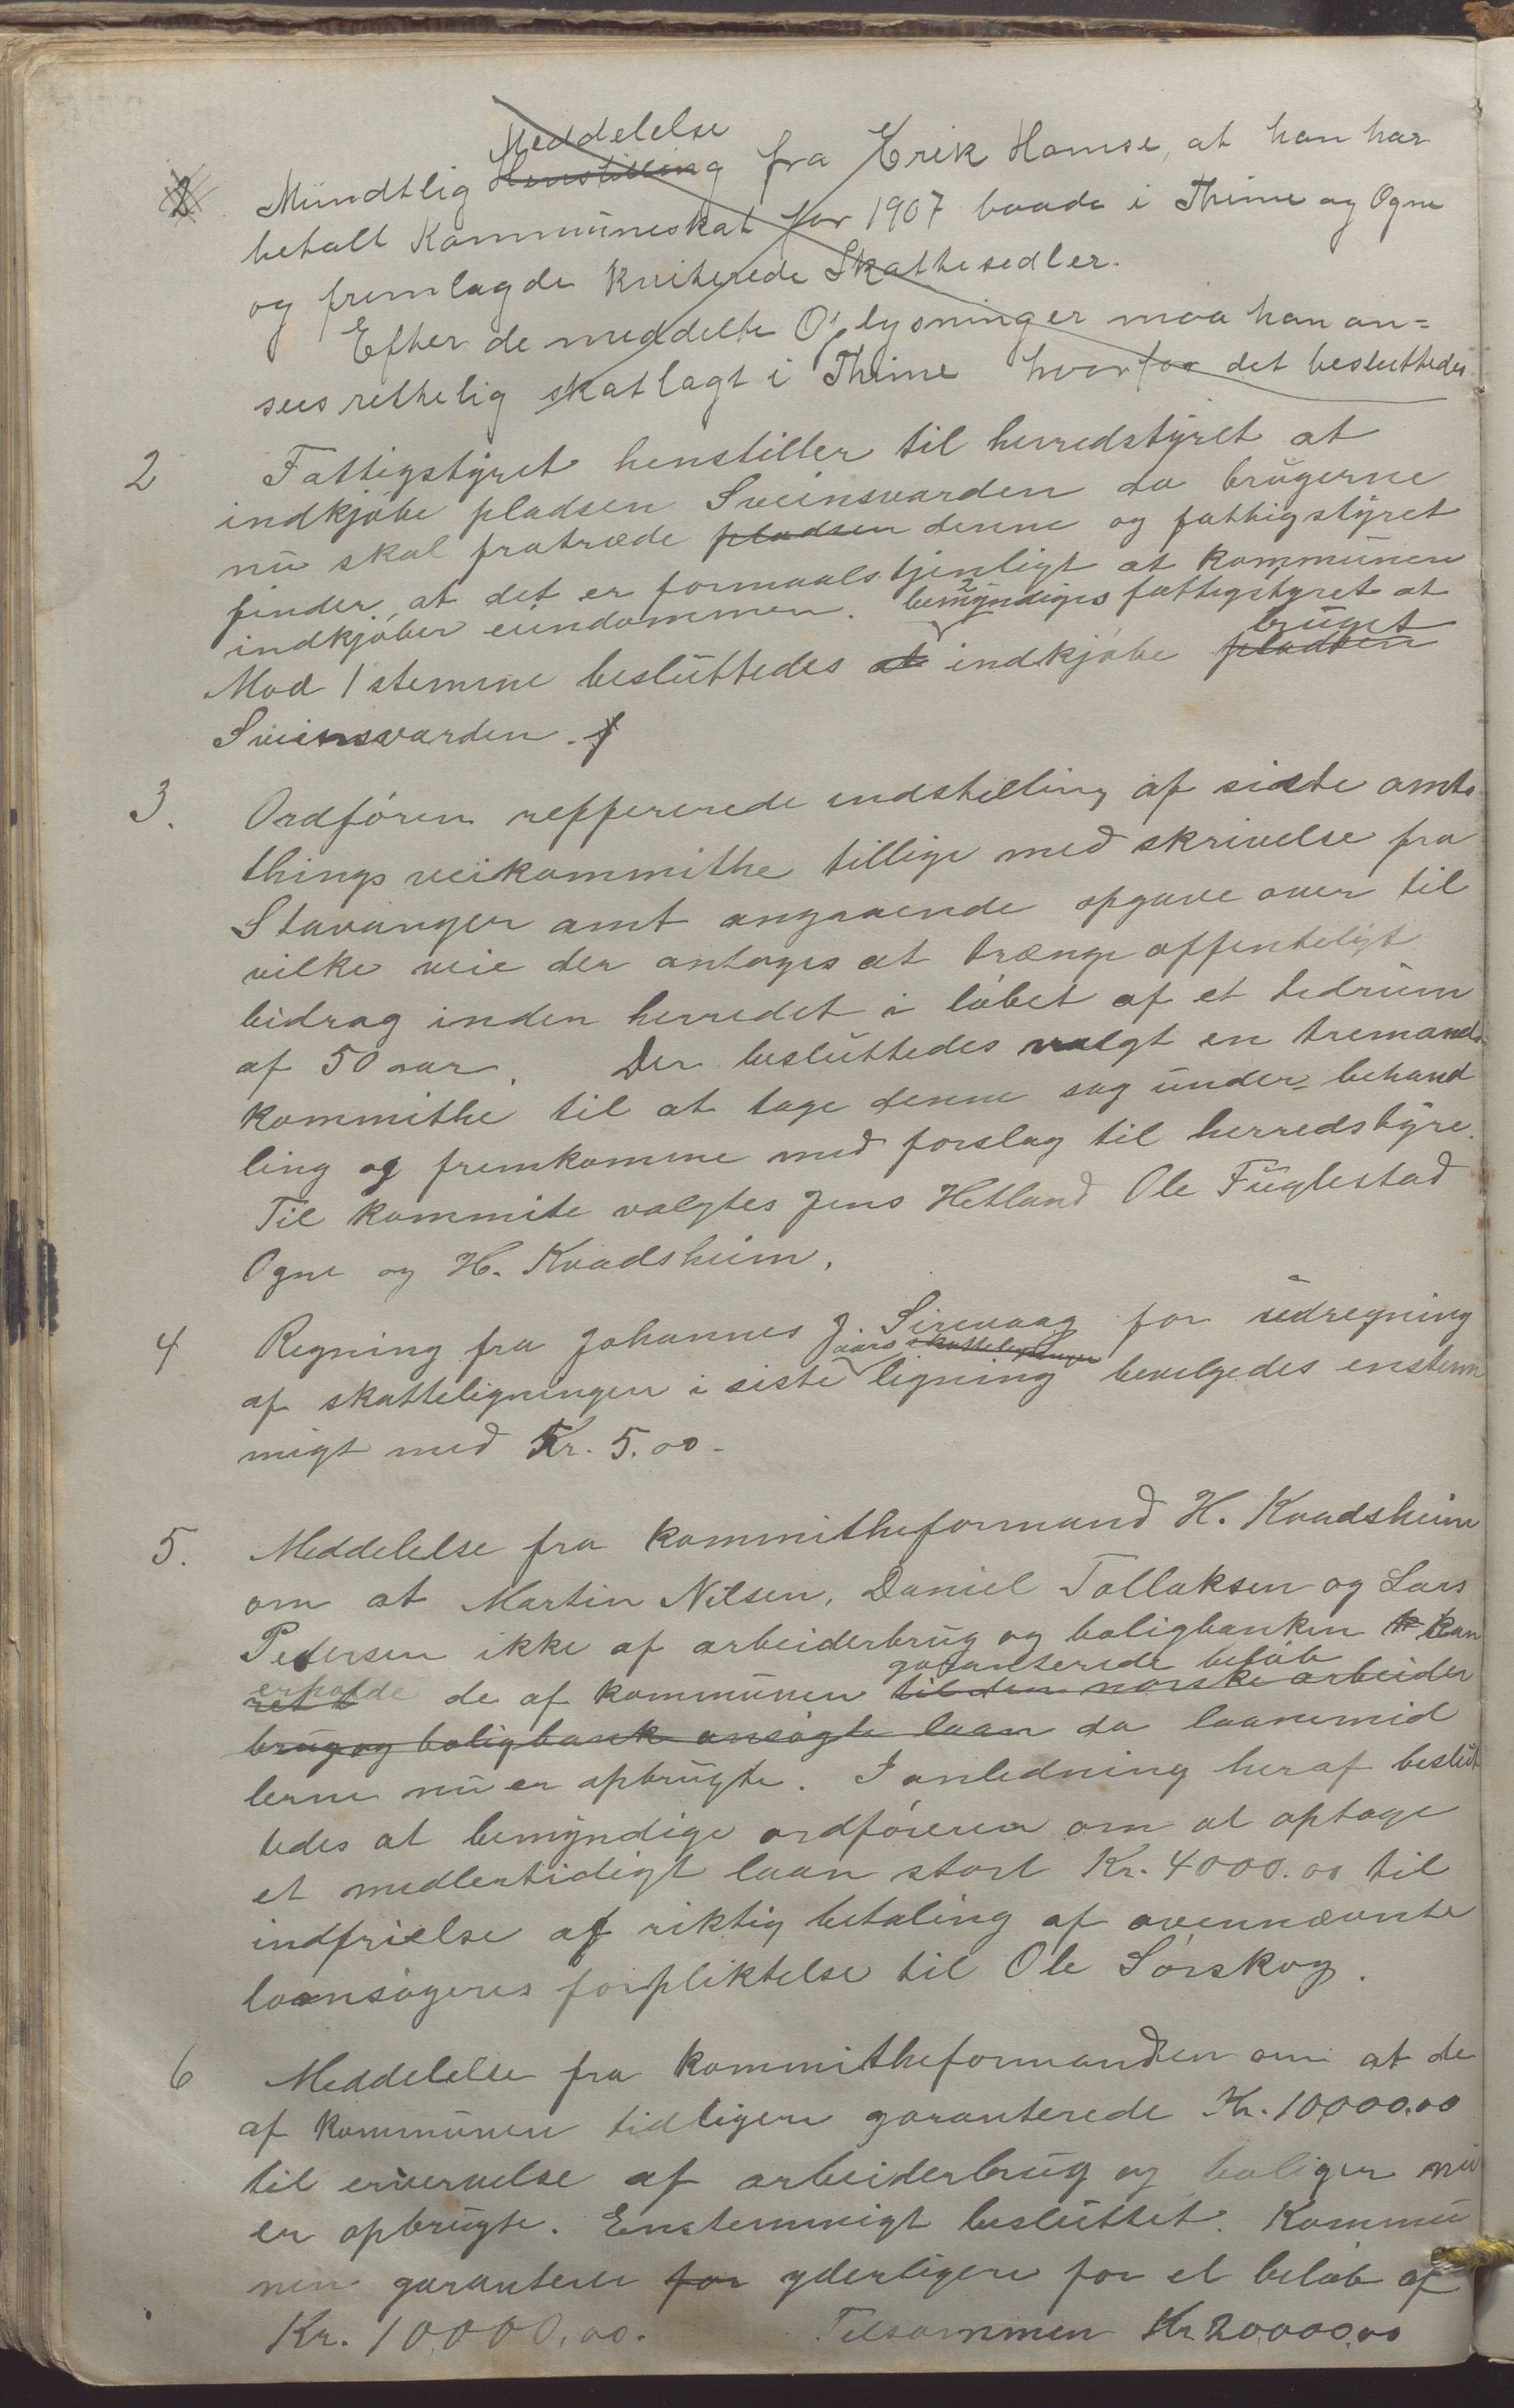 Meddelelse
2 Mundtlig Henstilling fra Erik Homse, at han har
betalt Kommuneskat for 1907 baade i Thime og Ogne
og fremlagde kviterede Skattesedler.
Efter de meddelte Oplysninger maa han an=
sees rettelig skatlagt i Thime hvorfor det besluttedes
2 Fattigstyret henstiller til herredstyret at
indkjøbe pladsen Sveinsvarden da brugerne
nu skal fratræde pladsen denne og fattigstyret
finder, at det er formaalstjenligt at kommunen
indkjøber eiendommen. bemyndiges fattigstyret at
bruget
Mod 1 stemme besluttedes at indkjøbe pladsen
Sveinsvarden.
3. Ordføren reffererede indstilling af sidste amts
things veikommithe tillige med skrivelse fra
Stavanger amt angaaende opgave over til
vilke veie der antages at trænge offenteligt
bidrag inden herredet i løbet af et tidrum
af 50 aar. Der besluttedes valgt en tremands
kommithe til at tage denne sag under behand
ling og fremkomme med forslag til herredstyre.
Til kommite valgtes Jens Hetland Ole Fuglestad
Ogne og H. Kvadsheim.
4 Regning fra Johannes J. Sirevaag for udregning
aars skatteligninger
af skatteligningen i siste ligning bevilgedes enstem
migt med Kr. 5.00.
5. Meddelelse fra kommitheformand H. Kvadsheim
om at Martin Nilsen, Daniel Tollaksen og Lars
Pedersen ikke af arbeiderbrug og boligbanken kan
garanterede beløb
erholde de af kommunen til den norske arbeider
brug og boligbank ansøgte laan da laanemid
lerne nu er opbrugte. I anledning heraf beslut
tedes at bemyndige ordføreren om at optage
et midlertidigt laan stort Kr. 4000.00 til
indfrielse af riktig betaling af ovennævnte
laansøgeres forpliktelse til Ole Sørskog.
6 Meddelelse fra kommitheformanden om at de
af kommunen tidligere garanterede Kr. 10,000.00
til erværvelse af arbeiderbrug og boliger nu
er opbrugte. Enstemmigt besluttet. Kommu
nen garanterer for yderligere for et beløb af
Kr. 10000,00. Tilsammen Kr 20000,00